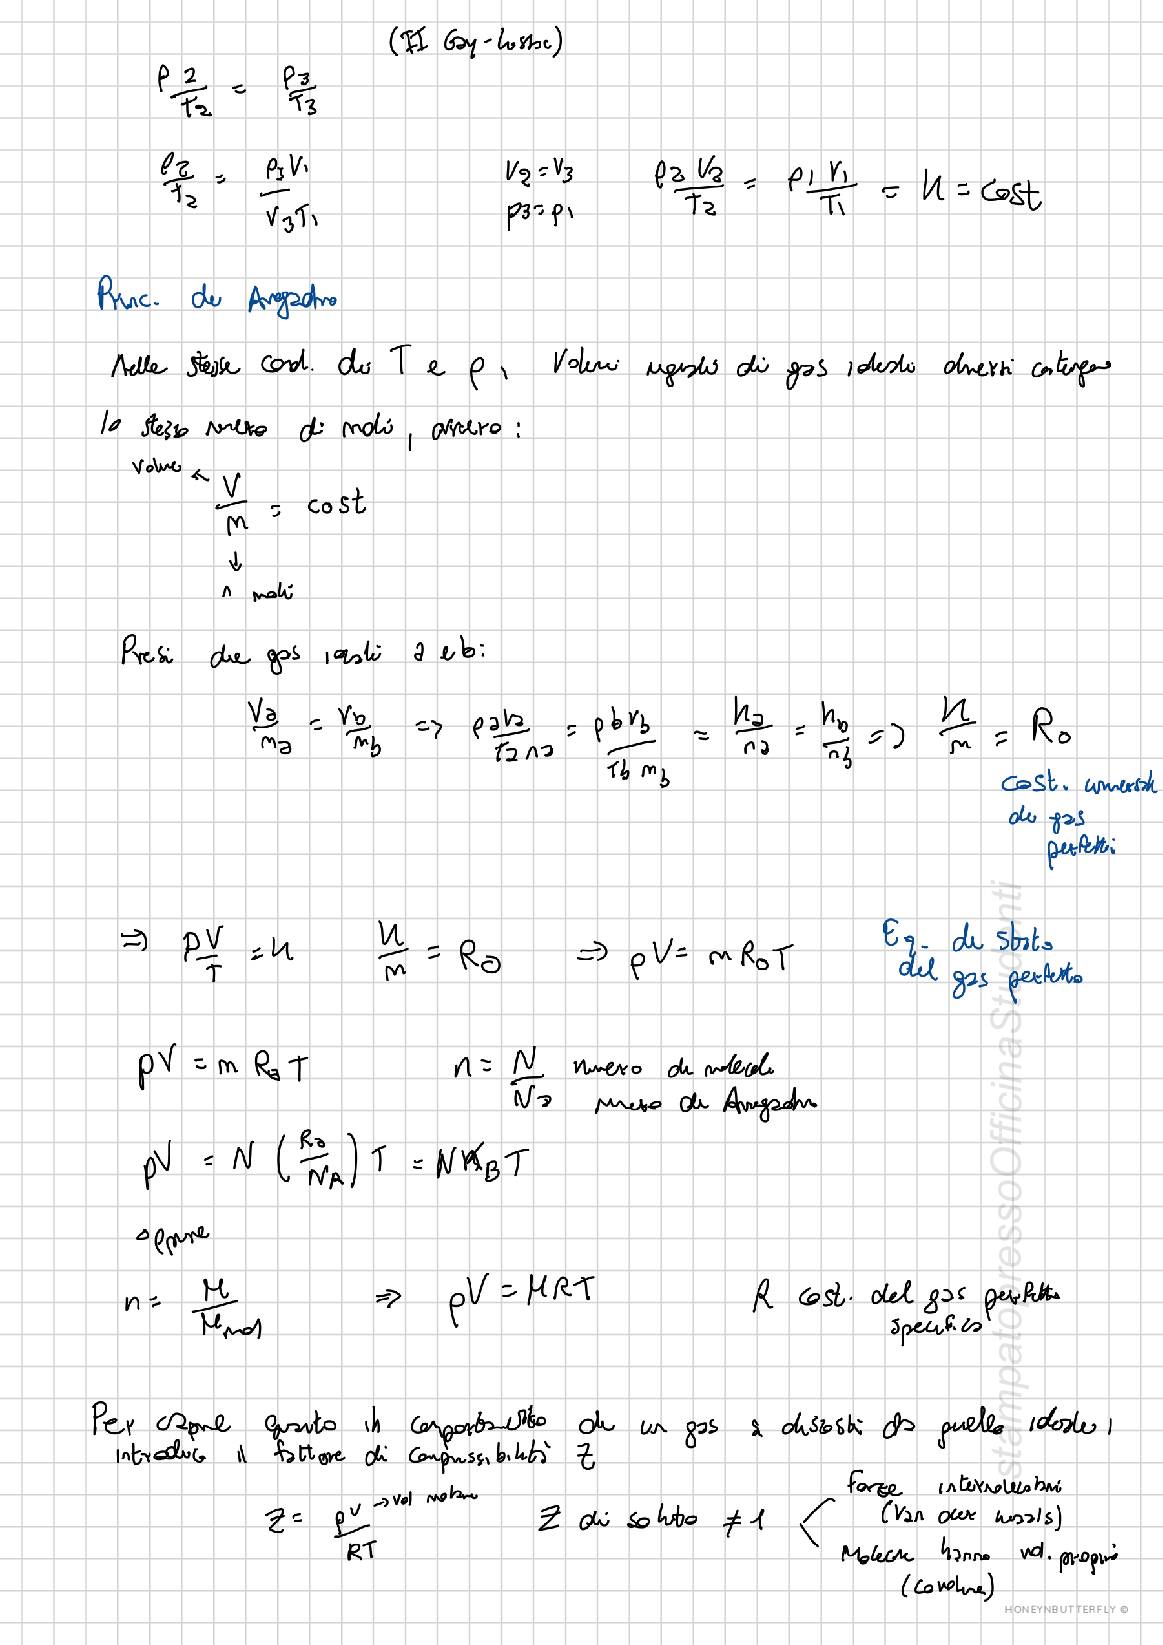 (II Gay-Lussac)
p2/T2 = p3/T3
p2/T2 = p3V1/V3T1   V2=V3   p3=p1   p2V2/T2 = p1V1/T1 = K = cost
Princ. di Avogadro
Nelle stesse cond. di T e p, Volumi uguali di gas ideali diversi contengono
lo stesso numero di moli, ovvero:
volume ← V/n = cost
↓
n moli
Presi due gas ideali a e b:
Va/na = Vb/nb => paVa/Tana = pbVb/Tbnb = Ka/na = Kb/nb => K/n = R0
cost. universale
dei gas
perfetti
=> pV/T = K   K/n = R0   => pV = nR0T   Eq. di stato
del gas perfetto
pV = n R0 T   n = N/Na   numero di molecole
numero di Avogadro
pV = N (R0/NA) T = NKBT
oppure
n = M/Mmol   => pV = MRT   R cost. del gas perfetto
specifico
Per capire quanto il comportamento di un gas si discosti da quello ideale,
introduco il fattore di compressibilità Z
Z = pV/RT → vol molare   Z di solito ≠ 1   Forze intermolecolari
(Van der Waals)
Molecole hanno vol. proprio
(covolume)
stampatopressoOfficinaStudenti
HONEYNBUTTERFLY ©